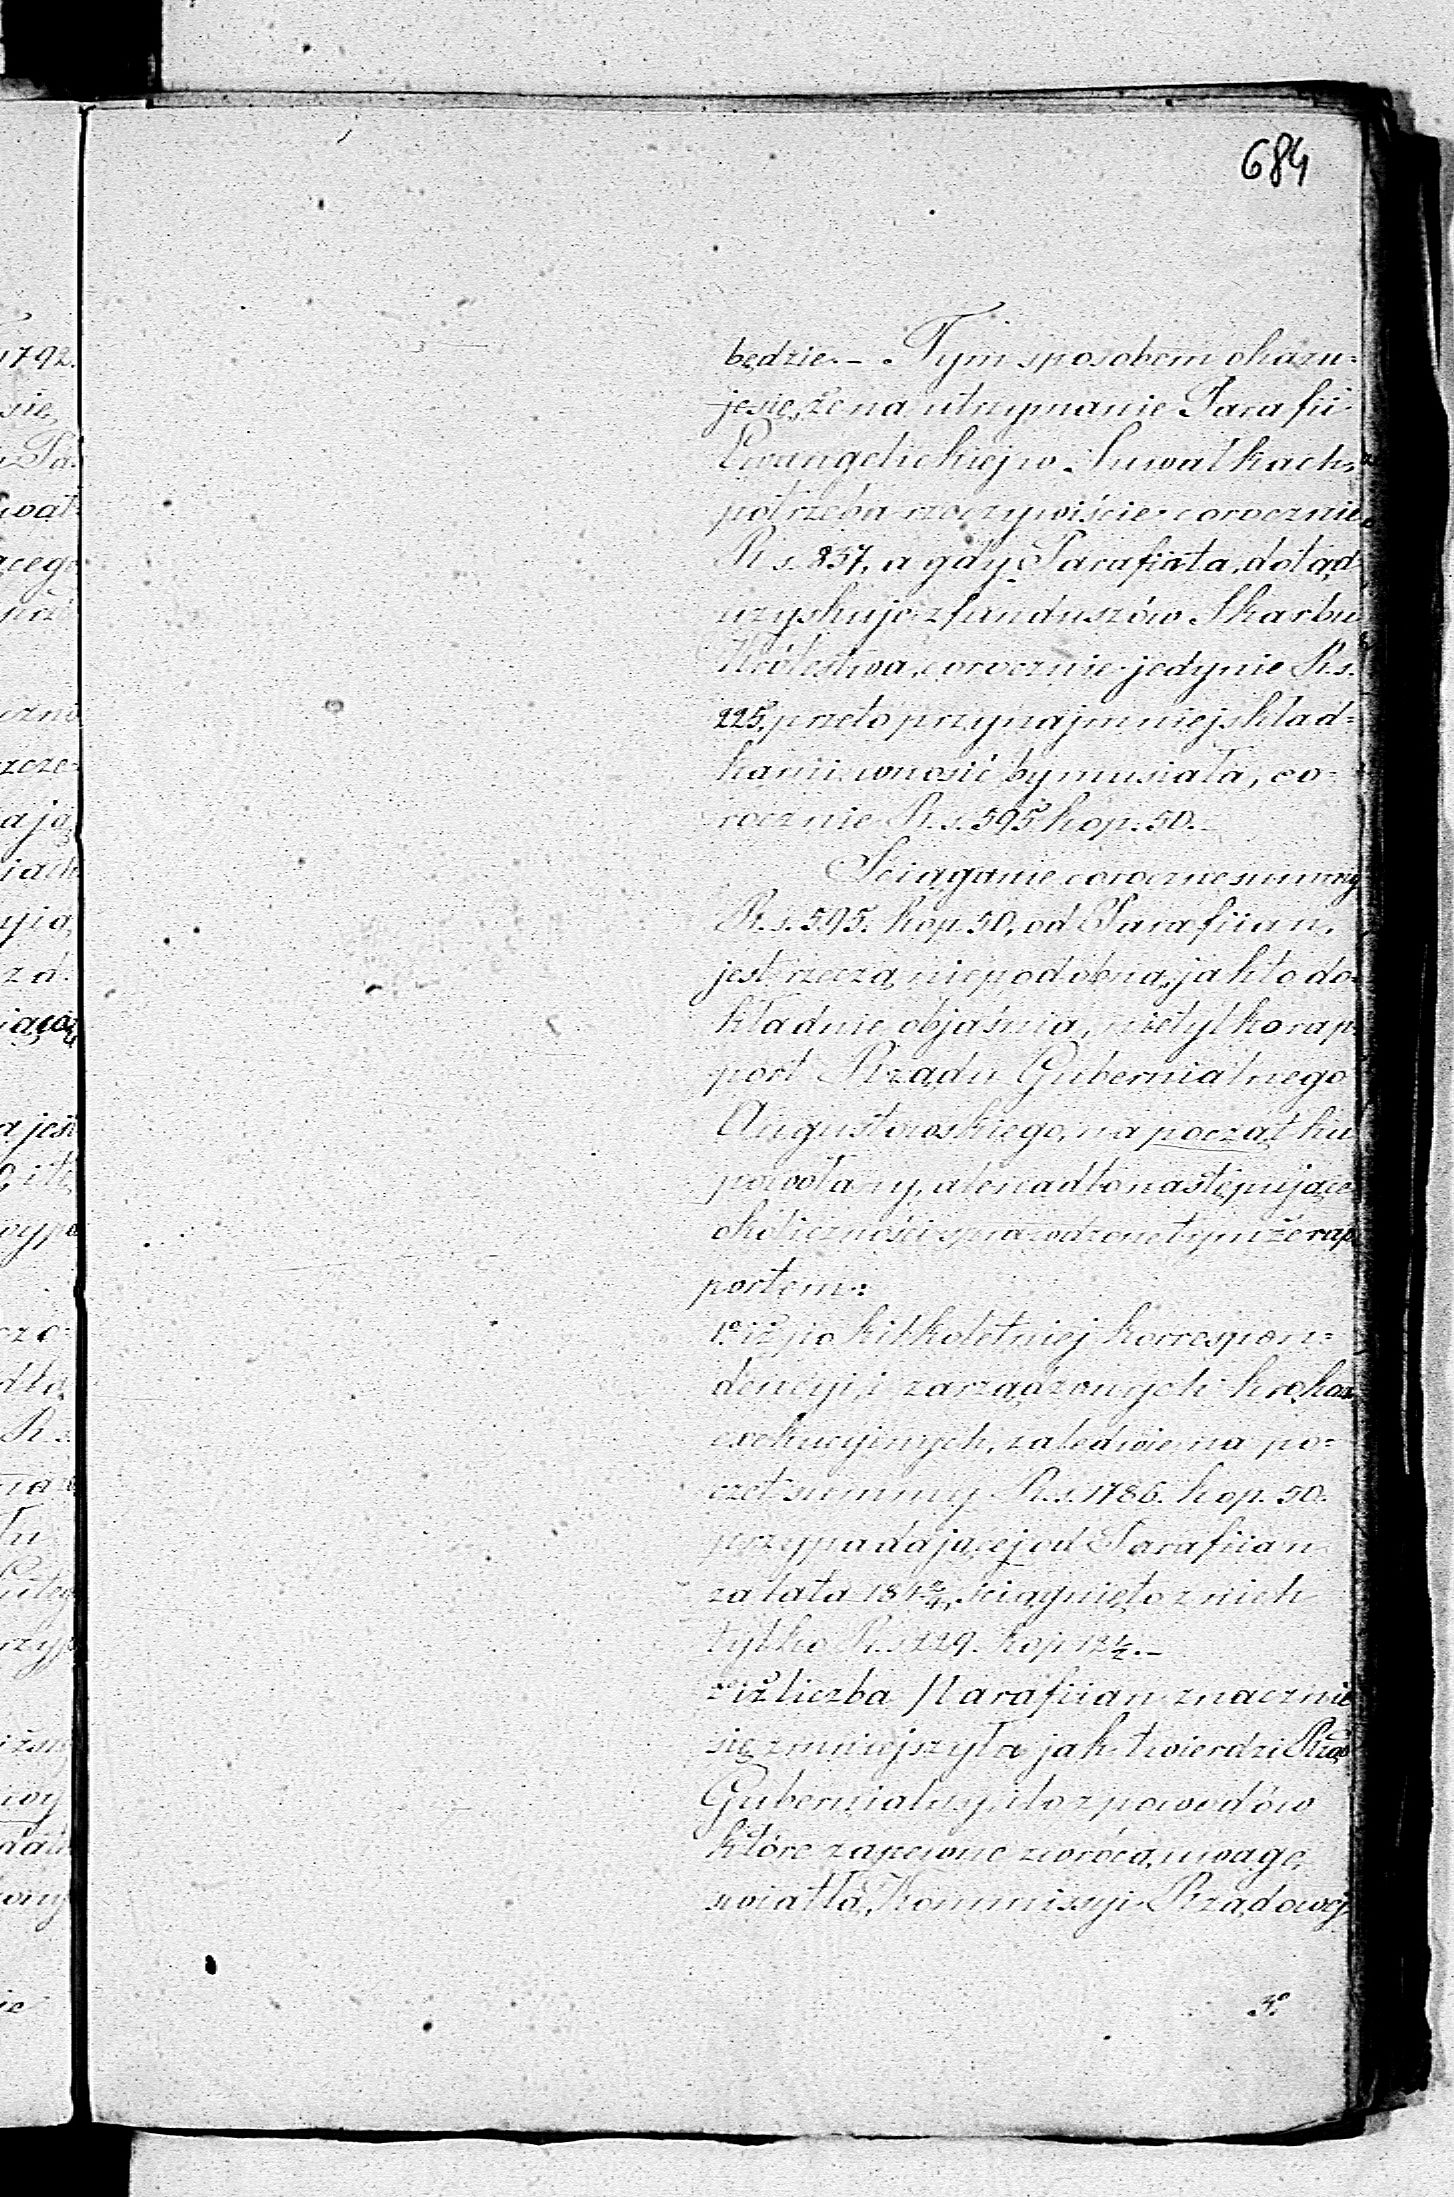 684
będzie.— Tym sposobem okazu=
je się, że na utrzymanie Parafii
Ewangelickiej w Suwałkach,
potrzeba rzeczywiście corocznie
R s. 837, a gdy Parafia ta, dotąd
uzyskuje z funduszów Skarbu
Królestwa, corocznie jedynie R.s.
225, przeto przynajmniej skład=
kami wnosić by musiała, co=
rocznie R.s. 595 kop. 50.
Sciąganie coroczne summy
R.s. 595. kop. 50, od Parafian,
jest rzeczą niepodobną, jak to do=
kładnie objaśnia, nietylko rap=
port Rządu Gubernialnego
Augustowskiego, na początku
powołany, ale nadto następujące
okoliczności sprawdzone tymże rap
portem:
1º iż po kilkoletniej korrespon=
dencyi, i zarządzonych krokach
exekucyjnych, zaledwie na po=
czet summy R.s. 1786. kop. 50.
przypadającej od Parafian
za lata 184 2/4, ściągnięto z nich
tylko R.s. 229. kop. 12½.—
2º iż liczba Parafian znacznie
się zmniejszyła jak twierdzi Rząd
Gubernialny, i to z powodów
które zapewne zwrócą uwagę
światłą Kommissyi Rządowej
3º